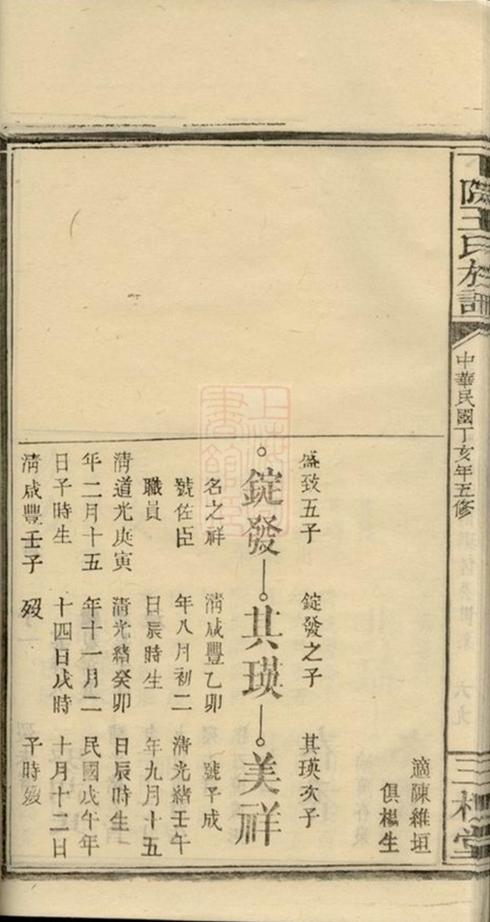 王氏族譜
中華民國丁亥年五修
三槐堂
適陳維垣
俱楊生
盛致五子
錠發之子
其瑛次子
錠發
其瑛
美祥
名之祥
號佐臣
職員
清道光庚寅
年二月十五
日子時生
清咸豐壬子
清咸豐乙卯
年八月初二
日辰時生
清光緒癸卯
年十一月二
十四日戌時
歿
號予成
清光緒壬午
年九月十五
日辰時生
民國戊午年
十月十二日
子時歿